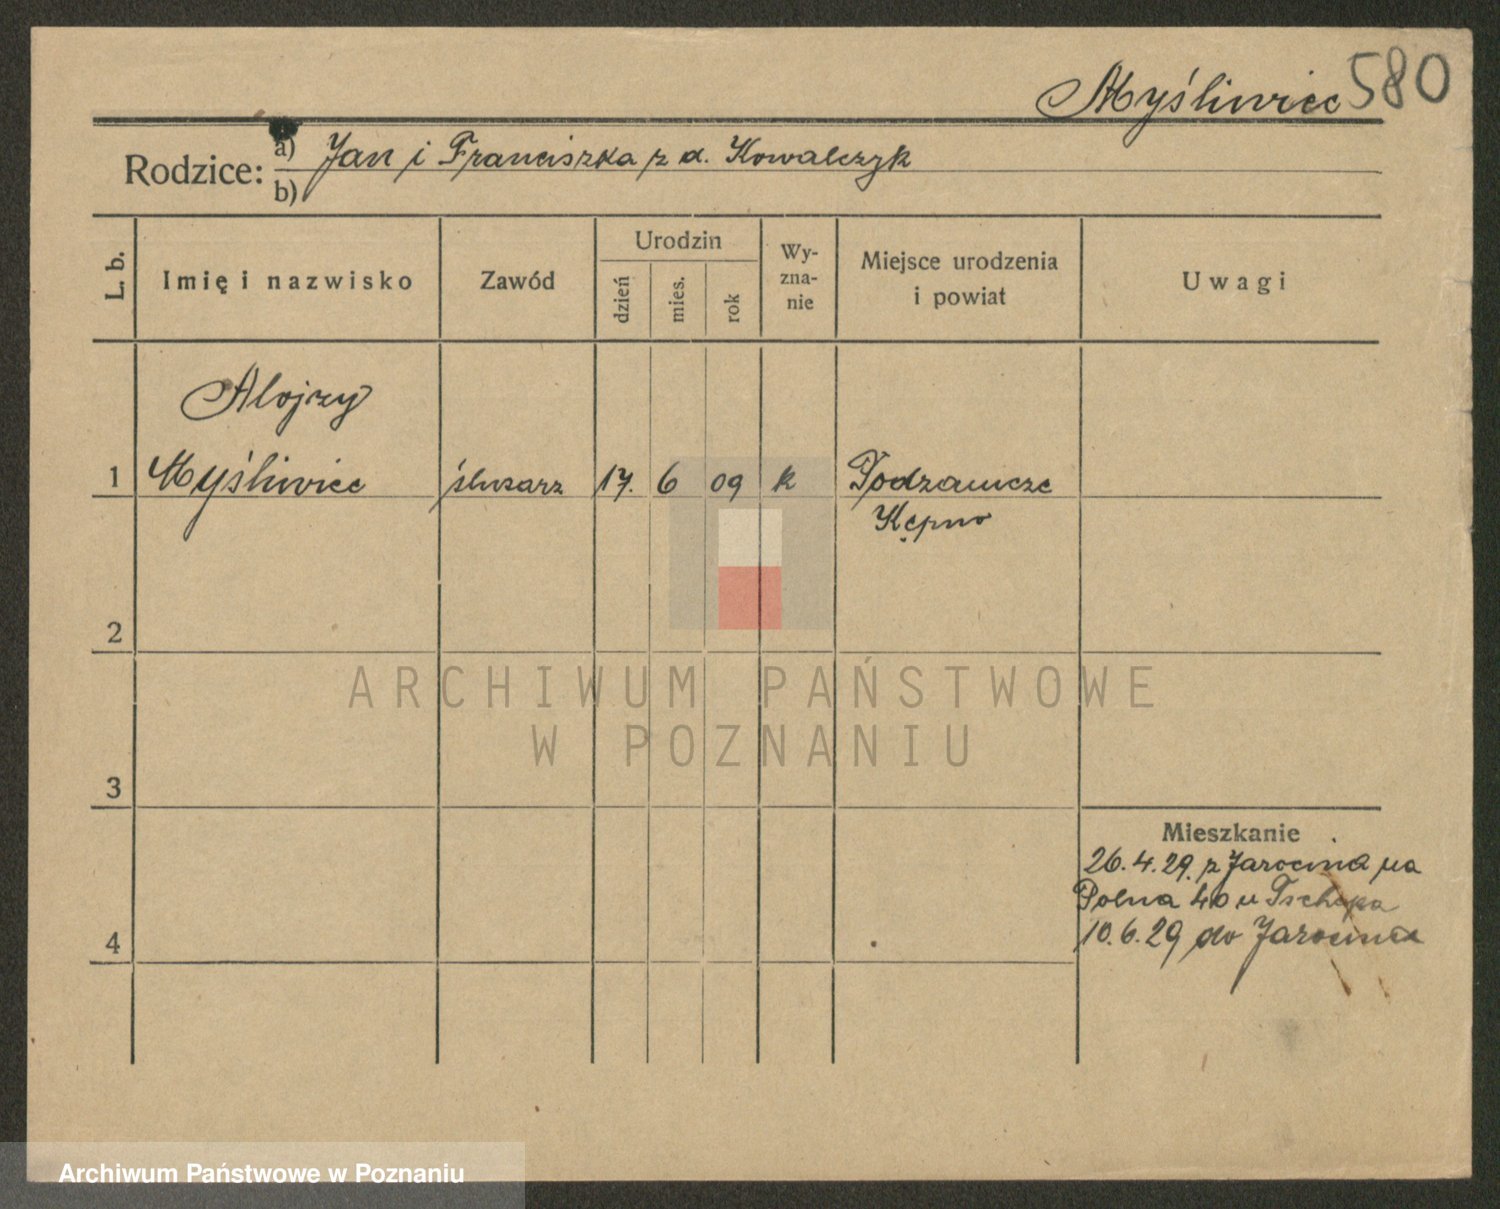 Myśliwiec 580
Rodzice: a) Jan i Franciszka z d. Kowalczyk
b)
L. b.
Imię i nazwisko
Zawód
Urodzin
dzień
mies.
rok
Wy-
zna-
nie
Miejsce urodzenia
i powiat
Uwagi
Alojzy
1 Myśliwiec ślusarz 17. 6 09 k Podzamcze
Kępno
2
ARCHIWUM PAŃSTWOWE
W POZNANIU
3
Mieszkanie
26.4.29. z Jarocina na
Polna 40 u
10.6.29 do Jarocina
4
Archiwum Państwowe w Poznaniu